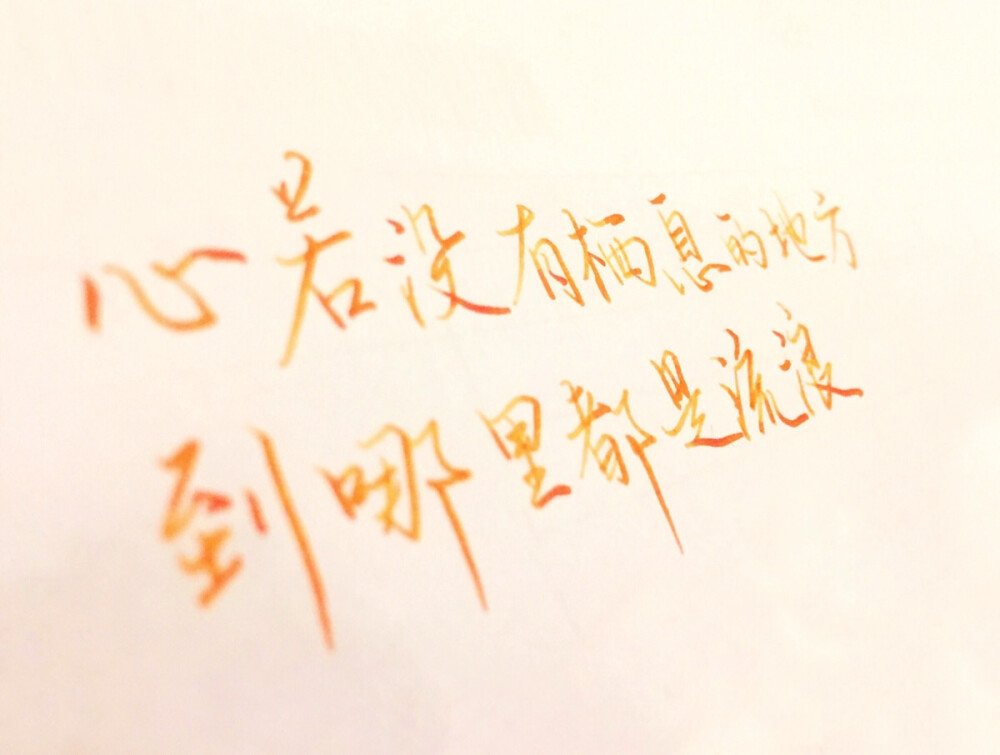 心若没有栖息的地方
到哪里都是流浪